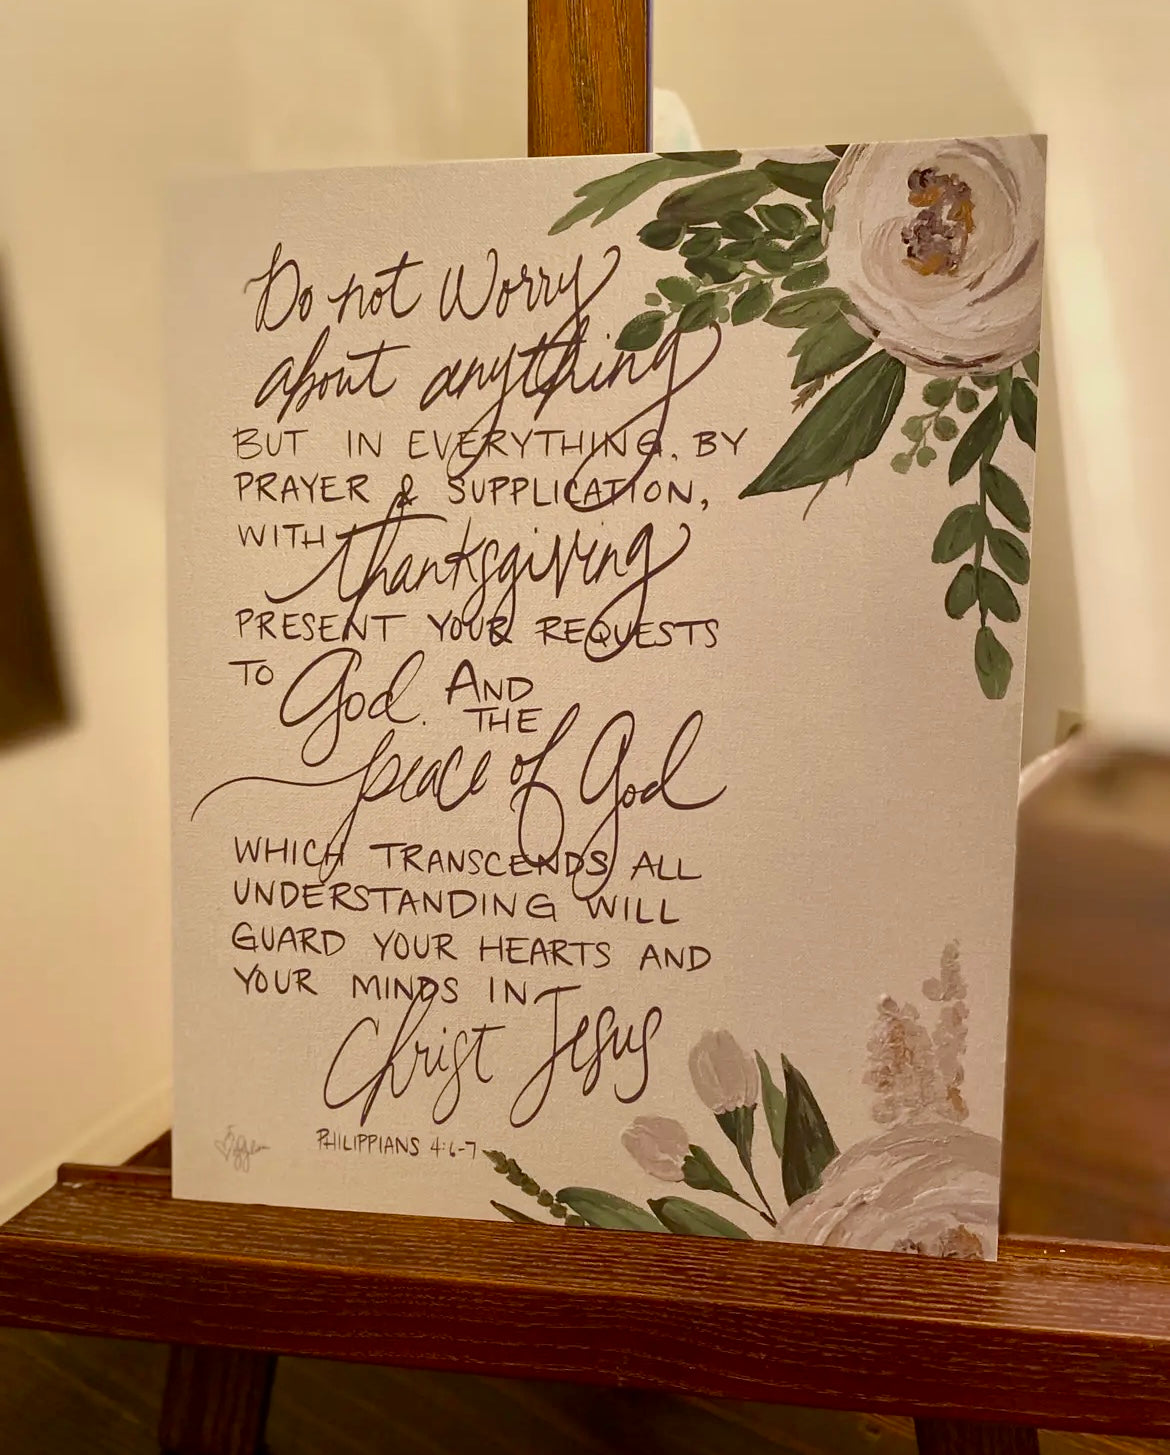 Do not Worry
about anything
BUT IN EVERYTHING, BY
PRAYER & SUPPLICATION,
WITH thanksgiving
PRESENT YOUR REQUESTS
TO God. AND
THE
peace of God
WHICH TRANSCENDS ALL
UNDERSTANDING WILL
GUARD YOUR HEARTS AND
YOUR MINDS IN
Christ Jesus
PHILIPPIANS 4:6-7